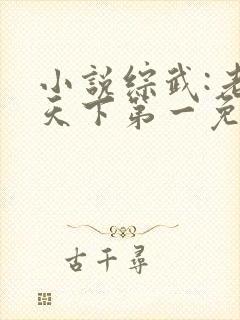 小説綜武:老
天下第一免
古千尋